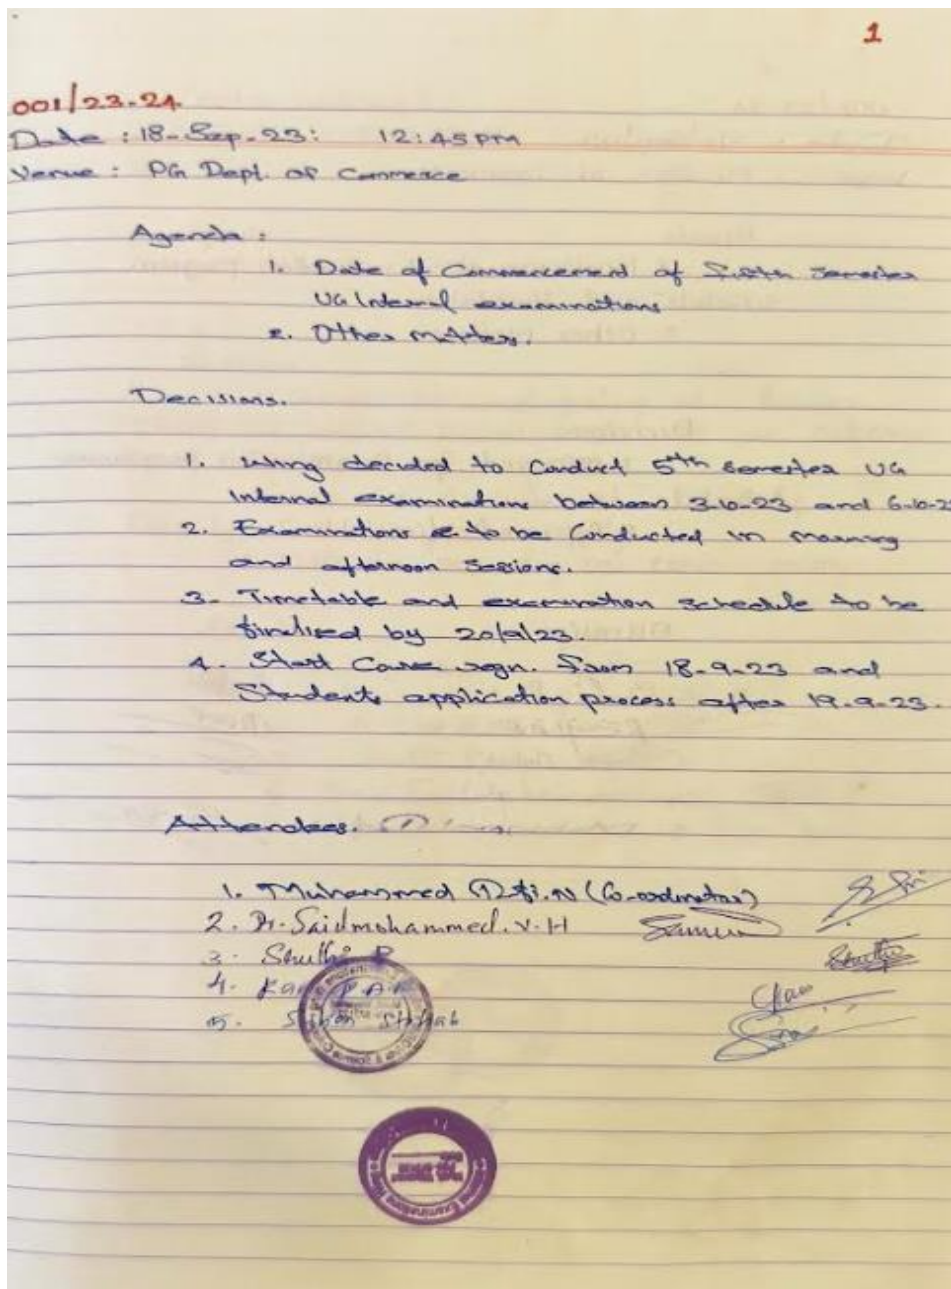 1
001/23-24
Date : 18-Sep-23: 12:45 PM
Venue : PG Dept. of Commerce
Agenda :
1. Date of Commencement of Fifth Semester
UG Internal examinations
2. Other matters.
Decisions.
1. Wing decided to Conduct 5th semester UG
Internal examinations between 3-10-23 and 6-10-23
2. Examinations to be Conducted in morning
and afternoon sessions.
3. Timetable and examination schedule to be
finalised by 20/9/23.
4. Start regn. from 18-9-23 and
Students application process after 19-9-23.
Attendees.
1. Muhammed N (Co-ordinator)
2. Dr. Saidmohammed. V.H
3. Shruthi P
4.
5. Shihab